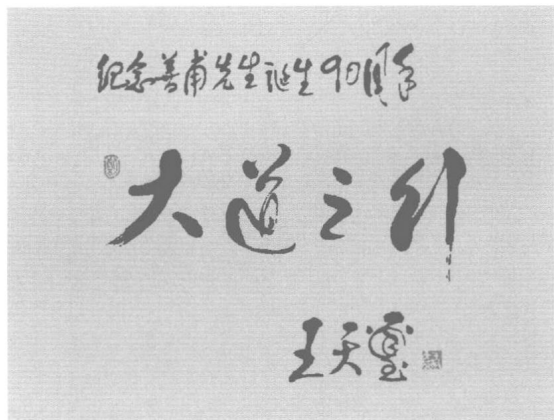 纪念善甫先生诞生90周年
大道之行
王天